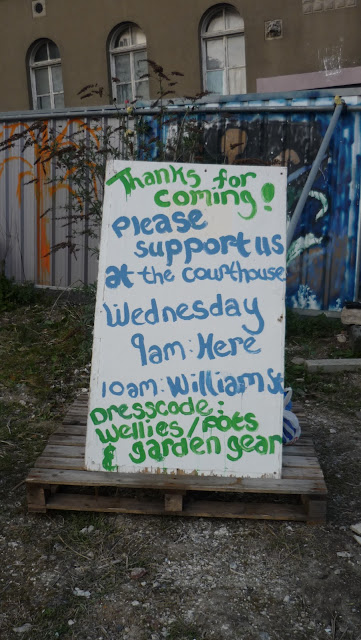 Thanks for
coming!
Please
support us
at the courthouse
Wednesday
9am: Here
10am: William St
Dresscode:
wellies/pots
& garden gear